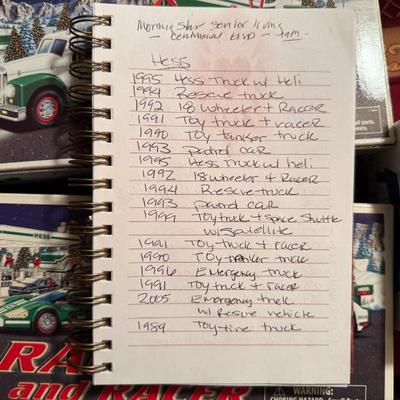 Morning Star Senior living
- Centennial Blvd - 9am -
Hess
1995 Hess Truck w/ Heli
1994 Rescue truck
1992 18 wheeler + RACER
1991 Toy truck + racer
1990 Toy tanker truck
1993 patrol car
1995 Hess Truck w/ heli
1992 18 wheeler + Racer
1994 Rescue truck
1993 patrol car
1999 Toy truck + space shuttle
w/ satellite
1991 Toy truck + racer
1990 Toy tanker truck
1996 Emergency truck
1991 Toy truck + racer
2005 Emergency truck
w/ Rescue vehicle
1989 Toy fire truck
HESS
RA
and RACER
WARNING:
CHOKING HAZARD